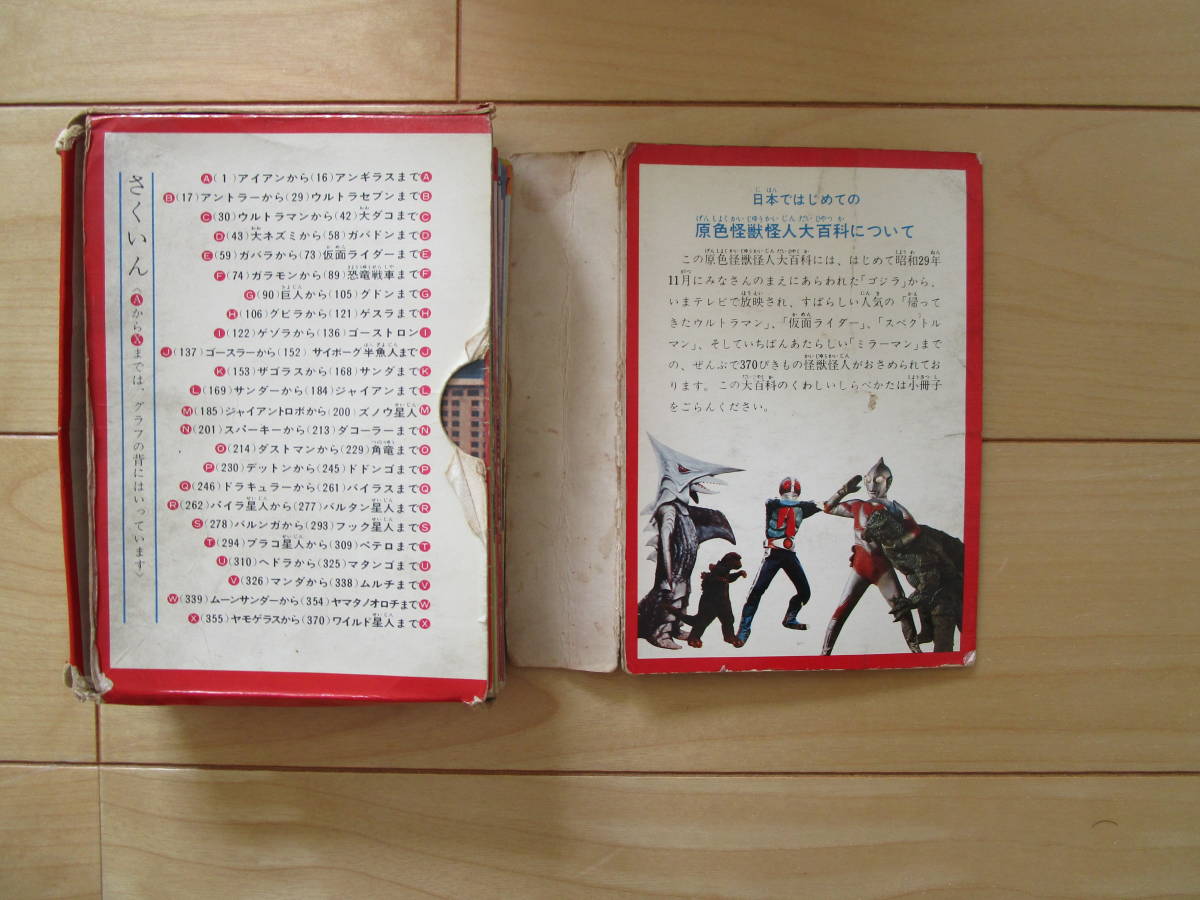 さくいん
〈AからXまでは、グラフの背にはいっています〉
A(1)アイアンから(16)アンギラスまでA
B(17)アントラーから(29)ウルトラセブンまでB
C(30)ウルトラマンから(42)大ダコまでC
D(43)大ネズミから(58)ガバドンまでD
E(59)ガバラから(73)仮面ライダーまでE
F(74)ガラモンから(89)恐竜戦車までF
G(90)巨人から(105)グドンまでG
H(106)グビラから(121)ゲスラまでH
I(122)ゲゾラから(136)ゴーストロンI
J(137)ゴースラーから(152)サイボーグ半魚人までJ
K(153)ザゴラスから(168)サンダまでK
L(169)サンダーから(184)ジャイアンまでL
M(185)ジャイアントロボから(200)ズノウ星人M
N(201)スパーキーから(213)ダコーラーまでN
O(214)ダストマンから(229)角竜までO
P(230)デットンから(245)ドドンゴまでP
Q(246)ドラキュラーから(261)バイラスまでQ
R(262)バイラ星人から(277)バルタン星人までR
S(278)バルンガから(293)フック星人までS
T(294)ブラコ星人から(309)ペテロまでT
U(310)ヘドラから(325)マタンゴまでU
V(326)マンダから(338)ムルチまでV
W(339)ムーンサンダーから(354)ヤマタノオロチまでW
X(355)ヤモゲラスから(370)ワイルド星人までX
日本ではじめての
原色怪獣怪人大百科について
この原色怪獣怪人大百科には、はじめて昭和29年
11月にみなさんのまえにあらわれた「ゴジラ」から、
いまテレビで放映され、すばらしい人気の「帰って
きたウルトラマン」、「仮面ライダー」、「スペクトル
マン」、そしていちばんあたらしい「ミラーマン」まで
の、ぜんぶで370ぴきもの怪獣怪人がおさめられてお
ります。この大百科のくわしいしらべかたは小冊子
をごらんください。